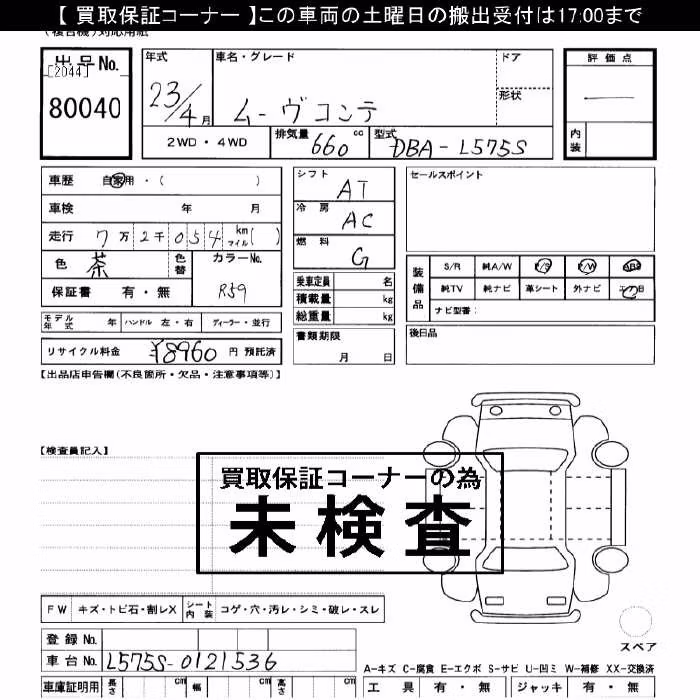 【 買取保証コーナー 】この車両の土曜日の搬出受付は17:00まで
(複合機)対応用紙
出品No.
[2044]
80040
年式
23/4月
車名・グレード
ムーヴコンテ
ドア
形状
評価点
—
内装
2WD・4WD
排気量 660 cc
型式 DBA-L575S
車歴 自家用・( )
車検 年 月
走行 7万2千054 km マイル( )
色 茶 色替
カラーNo. R59
保証書 有・無
モデル年式 年 ハンドル 左・右 ディーラー・並行
リサイクル料金 ¥8960 円 預託済
シフト AT
冷房 AC
燃料 G
乗車定員 名
積載量 kg
総重量 kg
書類期限
月 日
セールスポイント
装備品
S/R 純A/W P/S P/W ABS
純TV 純ナビ 革シート 外ナビ エアB
ナビ型番:
後日品
【出品店申告欄(不良箇所・欠品・注意事項等)】
【検査員記入】
買取保証コーナーの為
未検査
FW キズ・トビ石・割レX シート内装 コゲ・穴・汚レ・シミ・破レ・スレ
スペア
登録No.
車台No. L575S-0121536
車庫証明用 長さ cm 幅 cm 高さ cm
A-キズ C-腐食 E-エクボ S-サビ U-凹ミ W-補修 XX-交換済
工具 有・無 ジャッキ 有・無